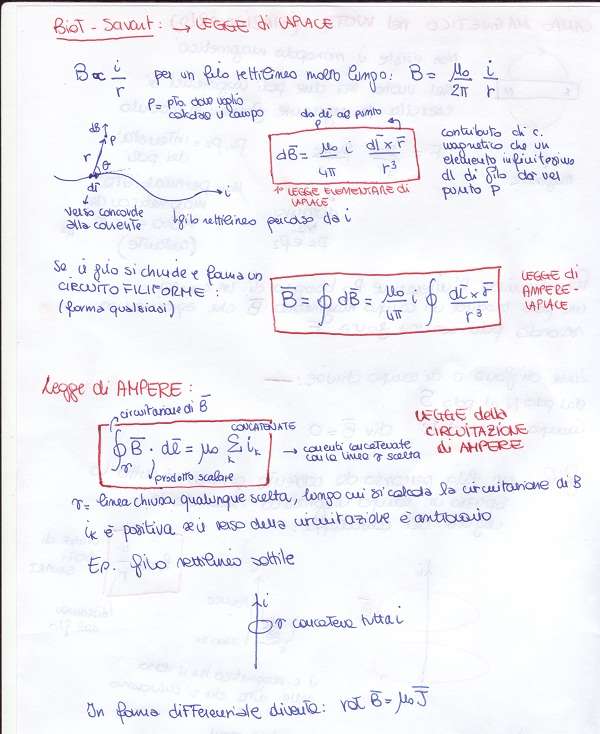 BIOT - SAVART: → LEGGE di LAPLACE
B ∝ i/r per un filo rettilineo molto lungo: B = μ₀/2π i/r
P = pto dove voglio calcolare il campo
da dl al punto P
dB̄ = μ₀/4π i dl̄ × r̄/r³
LEGGE ELEMENTARE di LAPLACE
contributo di c.
magnetico che un
elemento infinitesimo
dl di filo dà nel
punto P
dB̄
P
r
θ
dl̄
i
verso concorde
alla corrente
filo rettilineo percorso da i
Se il filo si chiude e forma un
CIRCUITO FILIFORME:
(forma qualsiasi)
B̄ = ∮ dB̄ = μ₀/4π i ∮ dl̄ × r̄/r³
LEGGE di
AMPERE-
LAPLACE
Legge di AMPERE:
circuitazione di B̄
CONCATENATE
∮γ B̄ · dl̄ = μ₀ Σk ik
prodotto scalare
→ correnti concatenate
con la linea γ scelta
LEGGE della
CIRCUITAZIONE
di AMPERE
γ = linea chiusa qualunque scelta, lungo cui si calcola la circuitazione di B
ik è positiva se il verso della circuitazione è antiorario
Ep. filo rettilineo sottile
i
γ concatena tutta i
In forma differenziale diventa: rot B̄ = μ₀ J̄